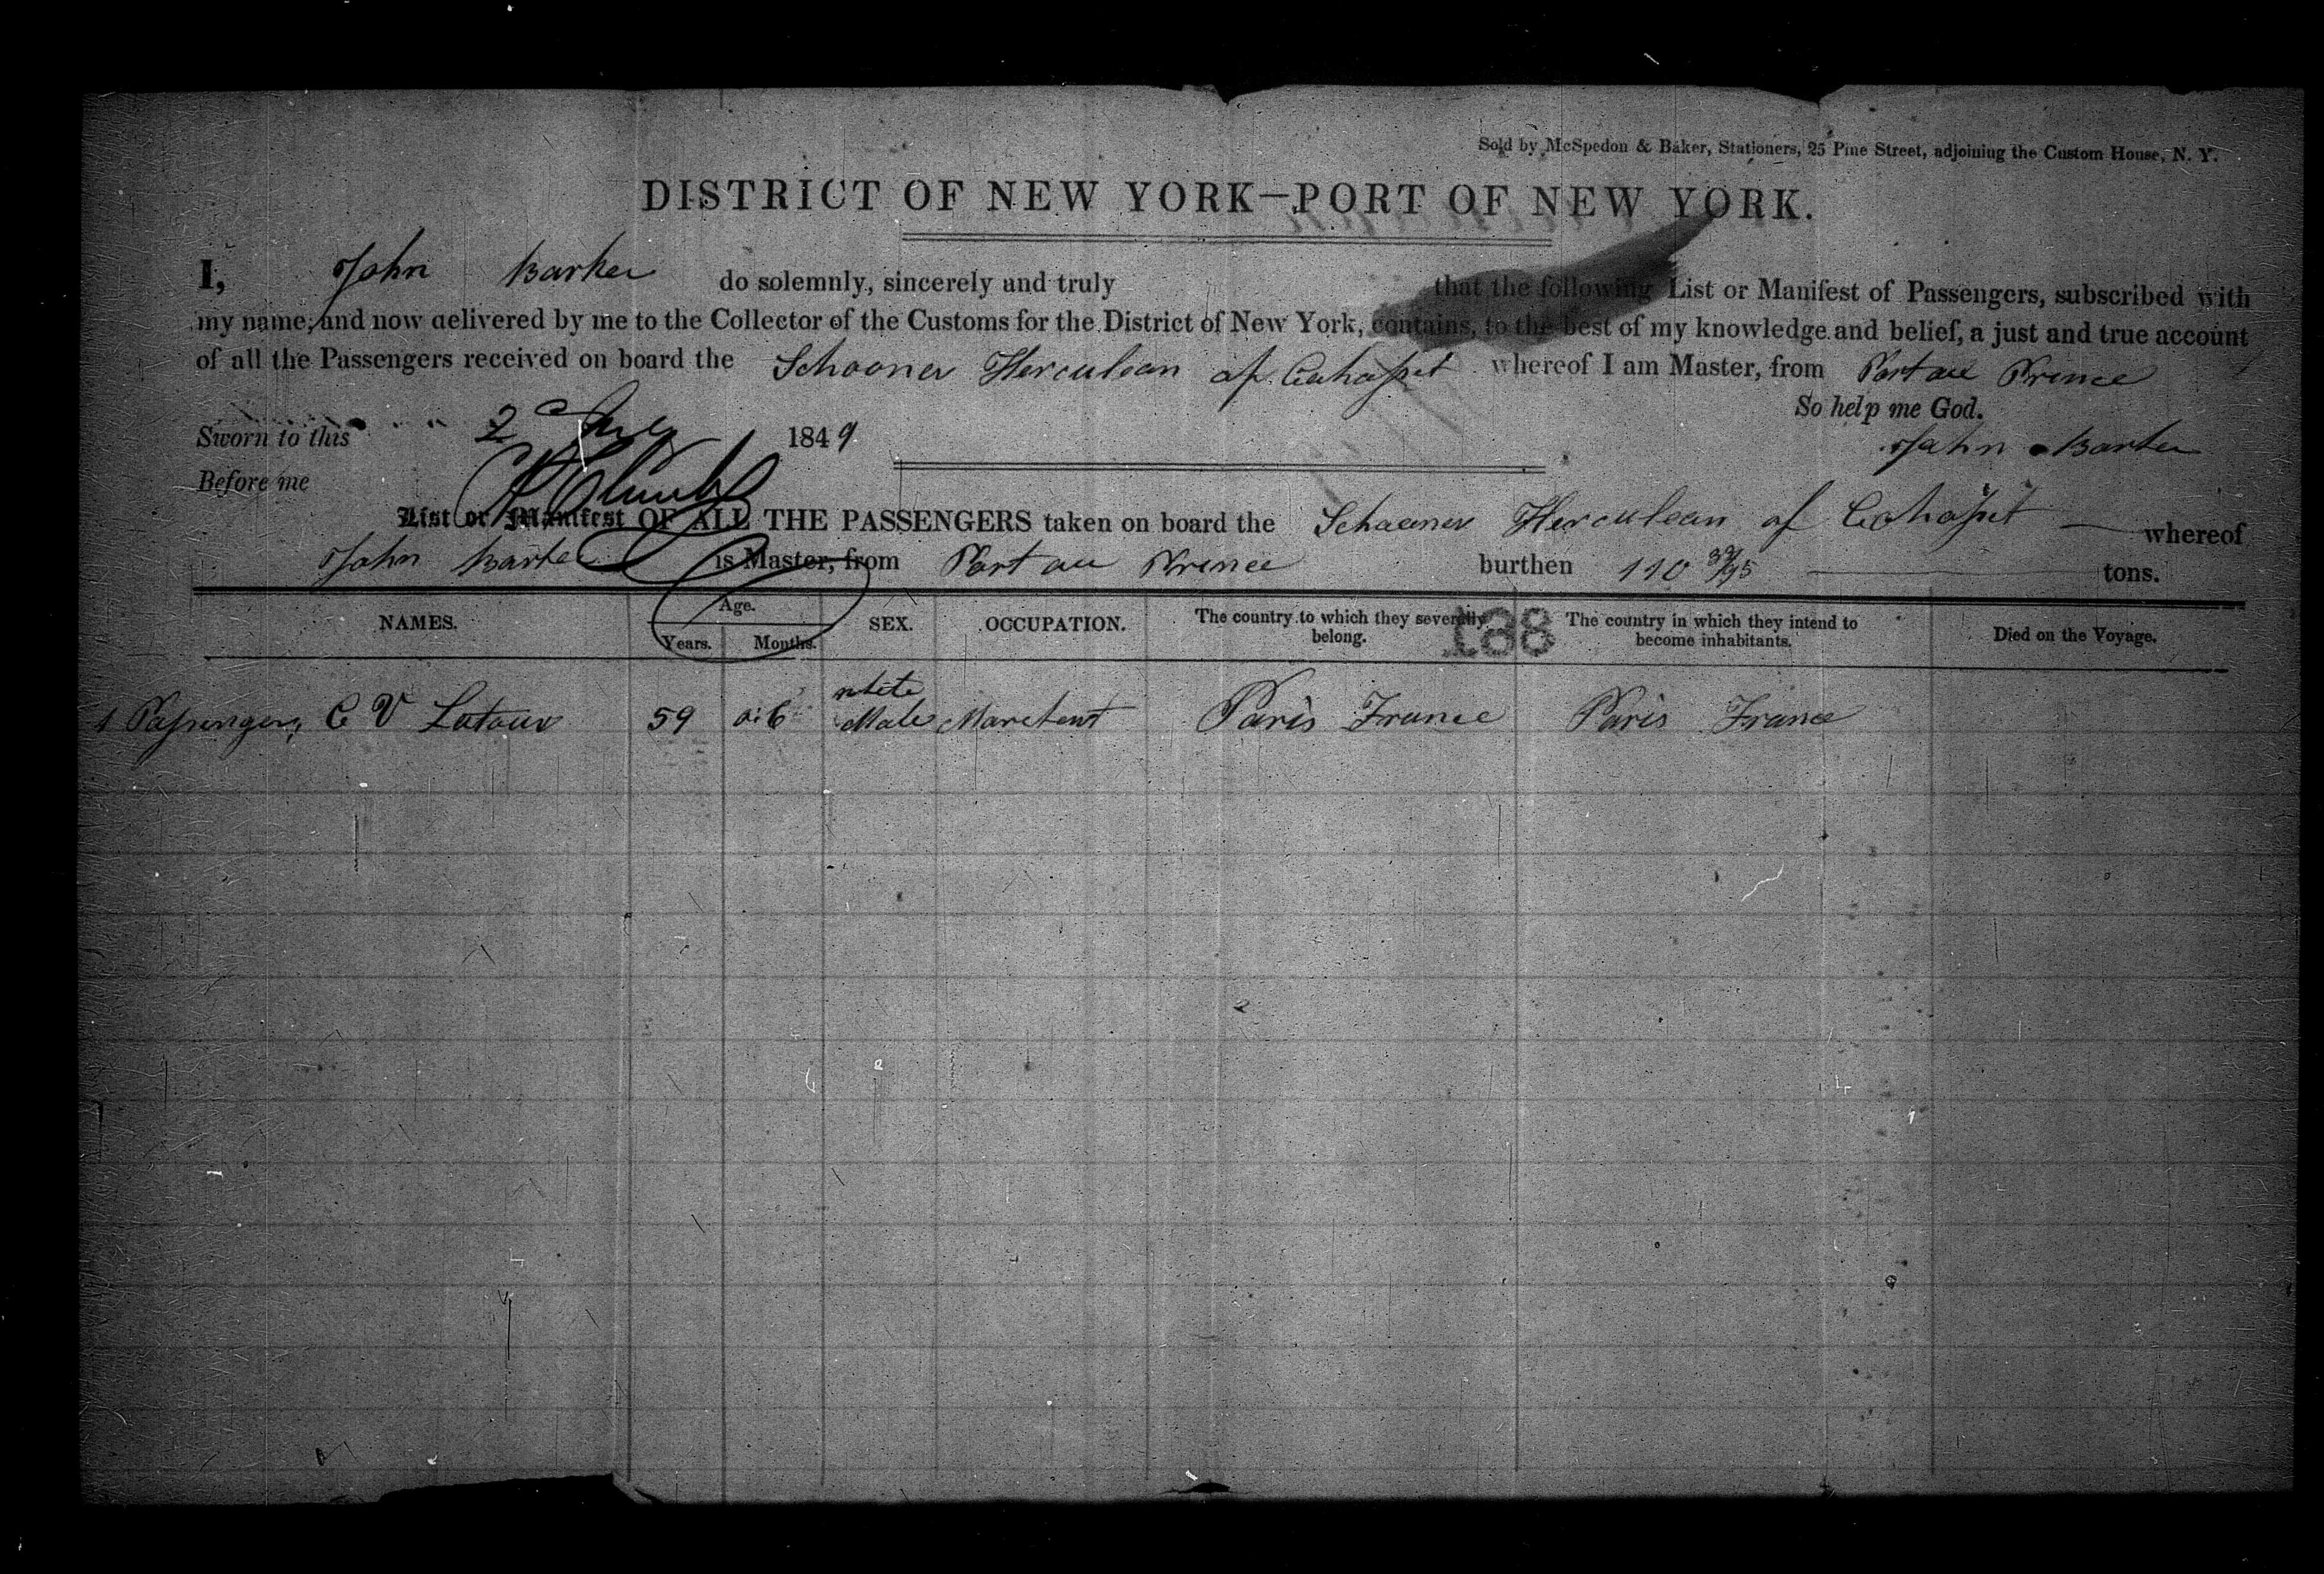 Sold by McSpedon & Baker, Stationers, 25 Pine Street, adjoining the Custom House, N. Y.
DISTRICT OF NEW YORK—PORT OF NEW YORK.
I, John Barker do solemnly, sincerely and truly that the following List or Manifest of Passengers, subscribed with
my name, and now delivered by me to the Collector of the Customs for the District of New York, contains, to the best of my knowledge and belief, a just and true account
of all the Passengers received on board the Schooner Herculean of Cohasset whereof I am Master, from Port au Prince
So help me God.
Sworn to this 2 1849
John Barker
Before me
List or Manifest OF ALL THE PASSENGERS taken on board the Schooner Herculean of Cohasset whereof
John Barker is Master, from Port au Prince burthen 110 39/95 tons.
NAMES. Age. Years. Months. SEX. OCCUPATION. The country to which they severally belong. The country in which they intend to become inhabitants. Died on the Voyage.
138
white
1 Passenger, C V Latour 59 6 Male Marchent Paris France Paris France